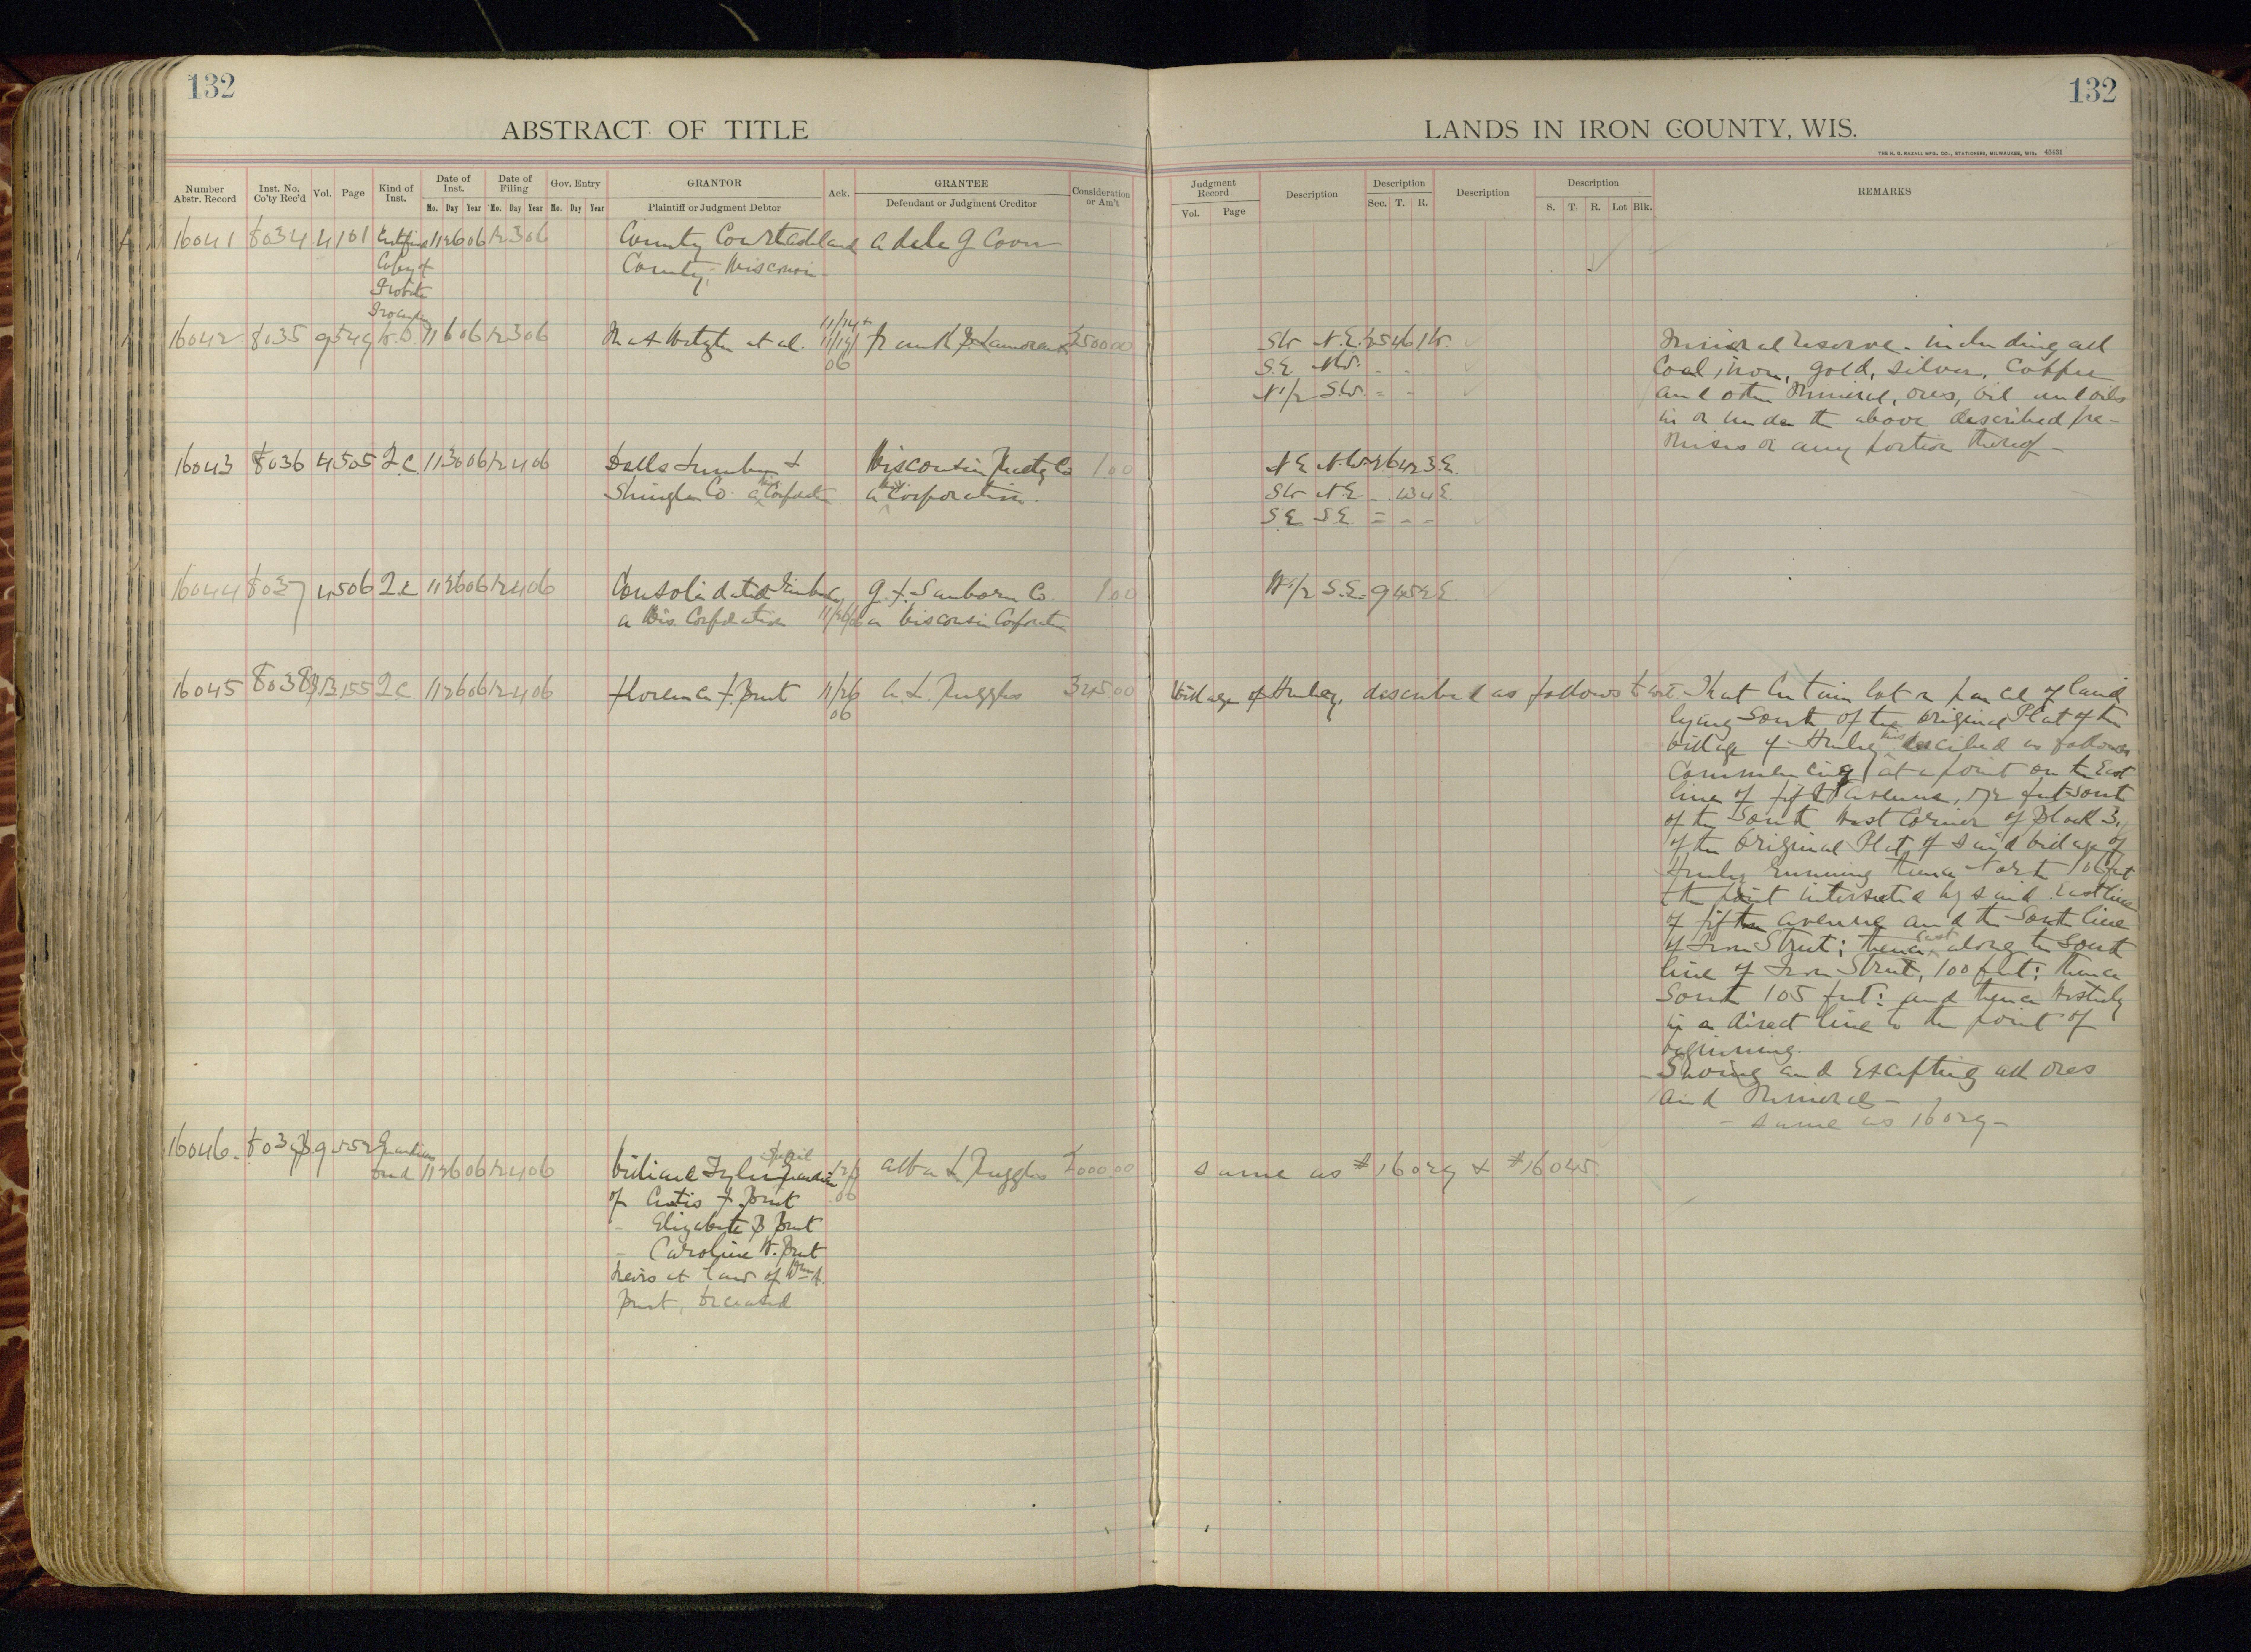 132
132
ABSTRACT OF TITLE
LANDS IN IRON COUNTY, WIS.
THE H. G. RAZALL MFG. CO., STATIONERS, MILWAUKEE, WIS. 45431
Number Abstr. Record
Inst. No. Co'ty Rec'd
Vol.
Page
Kind of Inst.
Date of Inst.
Mo. Day Year
Date of Filing
Mo. Day Year
Gov. Entry
Mo. Day Year
GRANTOR
Plaintiff or Judgment Debtor
Ack.
GRANTEE
Defendant or Judgment Creditor
Consideration or Am't
Judgment Record
Vol. Page
Description
Description
Sec. T. R.
Description
Description
S. T. R. Lot Blk.
REMARKS
16041 8034 4 101 11 26 06 12 3 06 County Court Ashland
County, Wisconsin
Copy of
Probate
16042 8035 9 549 W.D. 11 6 06 12 3 06 et al. 11/14 + 11/19/06 Frank 2500 00
SW N.E. 25 46 1W.
S.E. NW. - -
N1/2 S.W. = -
Mineral reserve - including all
Coal, iron, gold, silver, Copper
and other Mineral, ores, oil and oils
in or under the above described pre-
mises or any portion thereof -
16043 8036 4 505 Q.C. 11 30 06 12 4 06 Dells Lumber &
Shingle Co. a Wis. Corporation
Wisconsin Realty Co
a Wis. Corporation.
1.00
N.E. N.W. 26 42 3 E.
SW N.E.
S.E. S.E. = - -
16044 8037 4 506 Q.C. 11 26 06 12 4 06 Consolidated Timber Co
a Wis. Corporation 11/26/06
G. F. Sanborn Co.
a Wisconsin Corporation
1.00
W1/2 S.E. 9 45 2 E.
16045 8038 155 Q.C. 11 26 06 12 4 06 Florence F. 11/26 06 A. L. Ruggles 345 00
Village of Hurley, described as follows to wit: That certain lot or parcel of land
lying South of the original Plat of the
village of Hurley described as follows
Commencing at a point on the East
line of fifth Avenue, 172 feet South
of the South West Corner of Block 3,
of the Original Plat of said village of
Hurley running thence North 106 feet
the point intersected by said East line
of fifth Avenue and the South line
of Iron Street; thence East along the South
line of Iron Street, 100 feet; thence
South 105 feet; and thence Westerly
in a direct line to the point of
beginning.
- Saving and Excepting all ores
and Minerals -
- same as 16029 -
16046 8039 9 552 Guardians
Deed 11 26 06 12 4 06 William Special Guardian
of Curtis F.
- Elizabeth B.
- Caroline W.
heirs at law of Wm
deceased
Alba L. Ruggles 2000.00
same as #16029 & #16045.